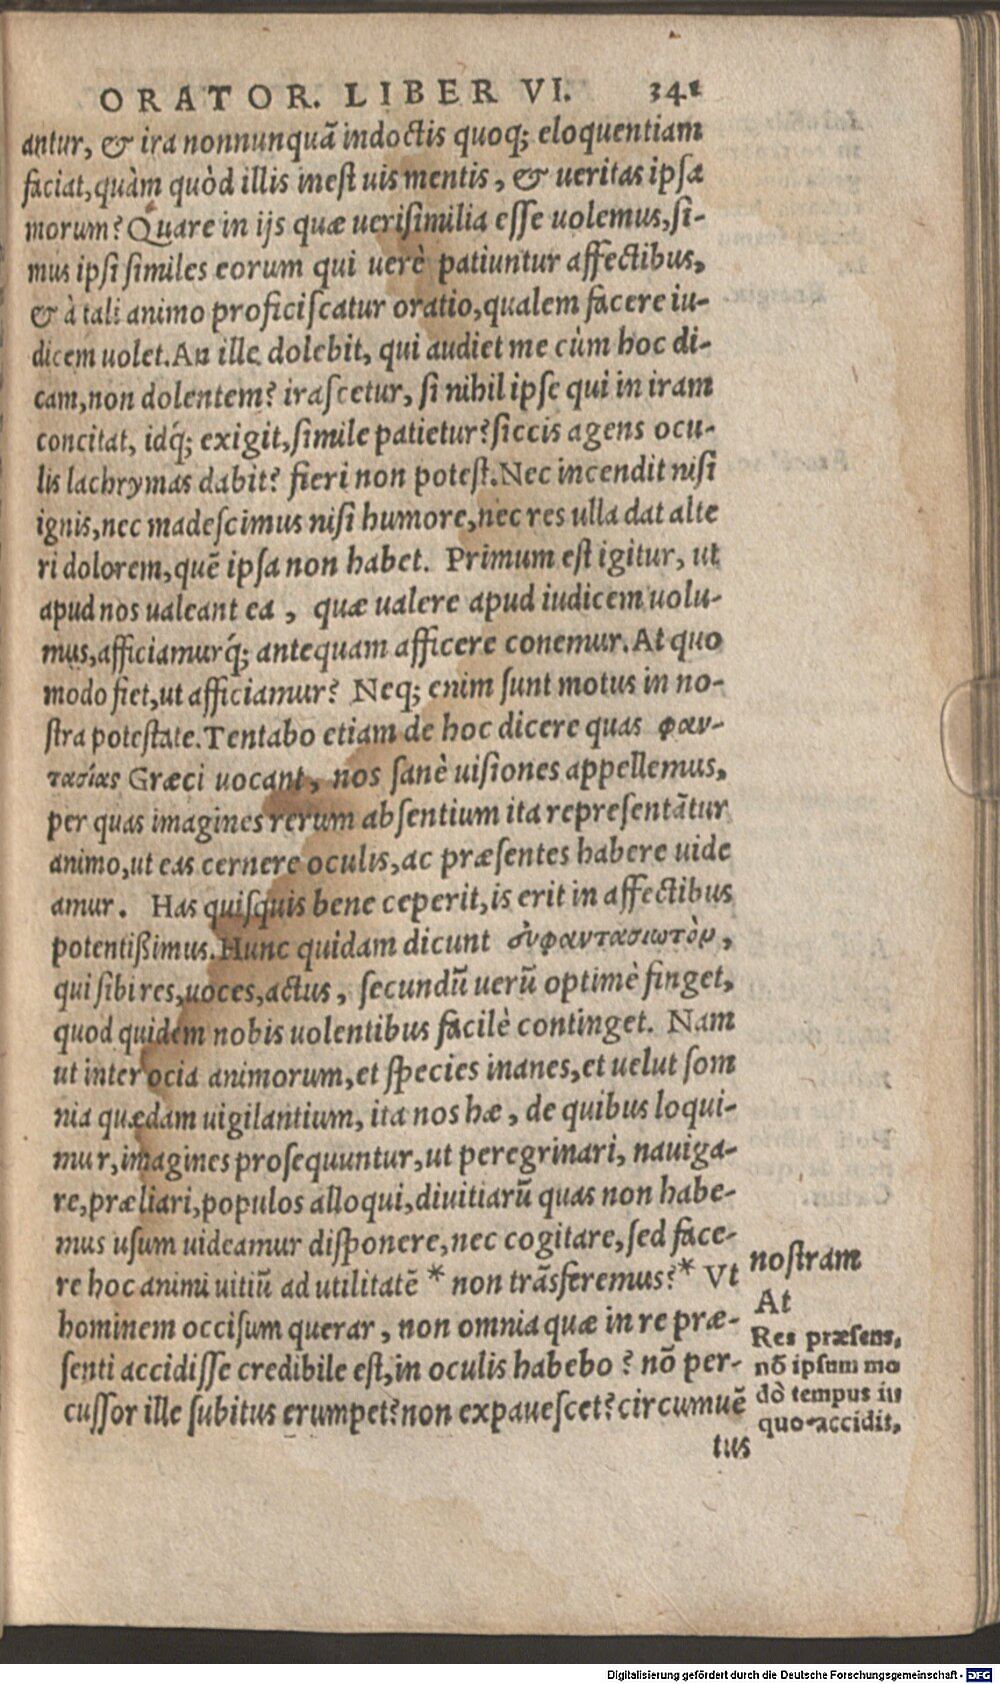 ORATOR. LIBER VI. 341
antur, & ira nonnunquā indoctis quoq; eloquentiam
faciat, quàm quòd illis inest uis mentis, & ueritas ipsa
morum? Quare in ijs quæ uerisimilia esse uolemus, si-
mus ipsi similes eorum qui uerè patiuntur affectibus,
& à tali animo proficiscatur oratio, qualem facere iu-
dicem uolet. An ille dolebit, qui audiet me cùm hoc di-
cam, non dolentem? irascetur, si nihil ipse qui in iram
concitat, idq́; exigit, simile patietur? siccis agens ocu-
lis lachrymas dabit? fieri non potest. Nec incendit nisi
ignis, nec madescimus nisi humore, nec res ulla dat alte
ri dolorem, quē ipsa non habet. Primum est igitur, ut
apud nos ualeant ea, quæ ualere apud iudicem uolu-
mus, afficiamurq́; antequam afficere conemur. At quo
modo fiet, ut afficiamur? Neq; enim sunt motus in no-
stra potestate. Tentabo etiam de hoc dicere quas φαν-
τασίας Græci uocant, nos sanè uisiones appellemus,
per quas imagines rerum absentium ita repræsentātur
animo, ut eas cernere oculis, ac præsentes habere uide
amur. Has quisquis bene ceperit, is erit in affectibus
potentißimus. Hunc quidam dicunt σὐφαντασιωτὸρ,
qui sibi res, uoces, actus, secundū uerū optimè finget,
quod quidem nobis uolentibus facilè continget. Nam
ut inter ocia animorum, et species inanes, et uelut som
nia quædam uigilantium, ita nos hæ, de quibus loqui-
mur, imagines prosequuntur, ut peregrinari, nauiga-
re, præliari, populos alloqui, diuitiarū quas non habe-
mus usum uideamur disponere, nec cogitare, sed face-
re hoc animi uitiū ad utilitatē * non trāsferemus? * Vt
hominem occisum querar, non omnia quæ in re præ-
senti accidisse credibile est, in oculis habebo? nō per-
cussor ille subitus erumpet? non expauescet? circumuē
tus
nostram
At
Res præsens,
nō ipsum mo
dò tempus in
quo accidit,
Digitalisierung gefördert durch die Deutsche Forschungsgemeinschaft - DFG